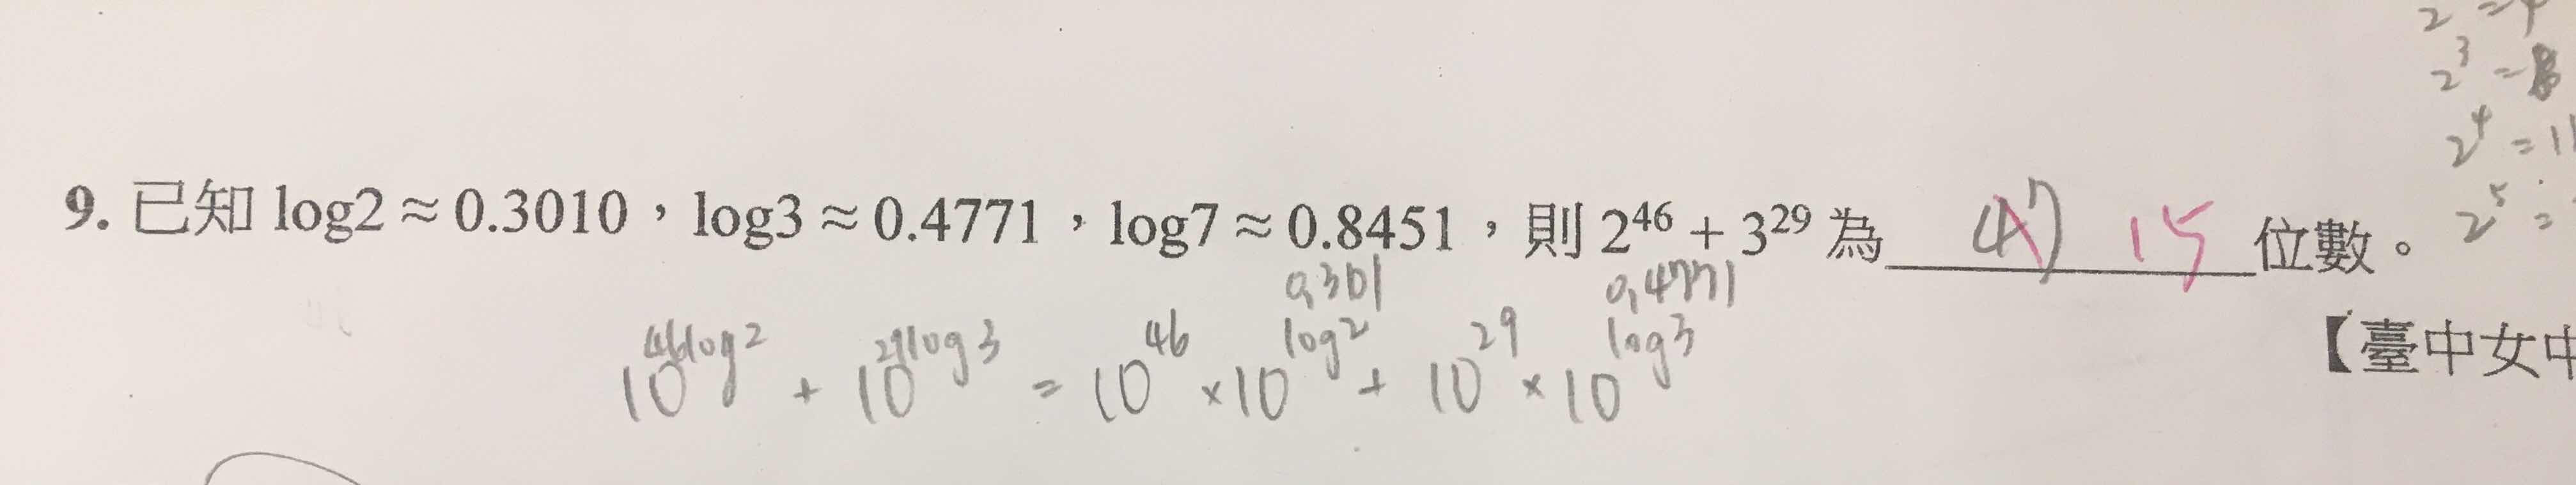 2 =
2³ = 8
2⁴ = 1
2⁵ =
9. 已知 log2 ≈ 0.3010，log3 ≈ 0.4771，log7 ≈ 0.8451，則 2⁴⁶ + 3²⁹ 為 47 15 位數。
0.301 0.4771
10^(46log2) + 10^(29log3) = 10^46 × 10^(log2) + 10^29 × 10^(log3)
【臺中女中